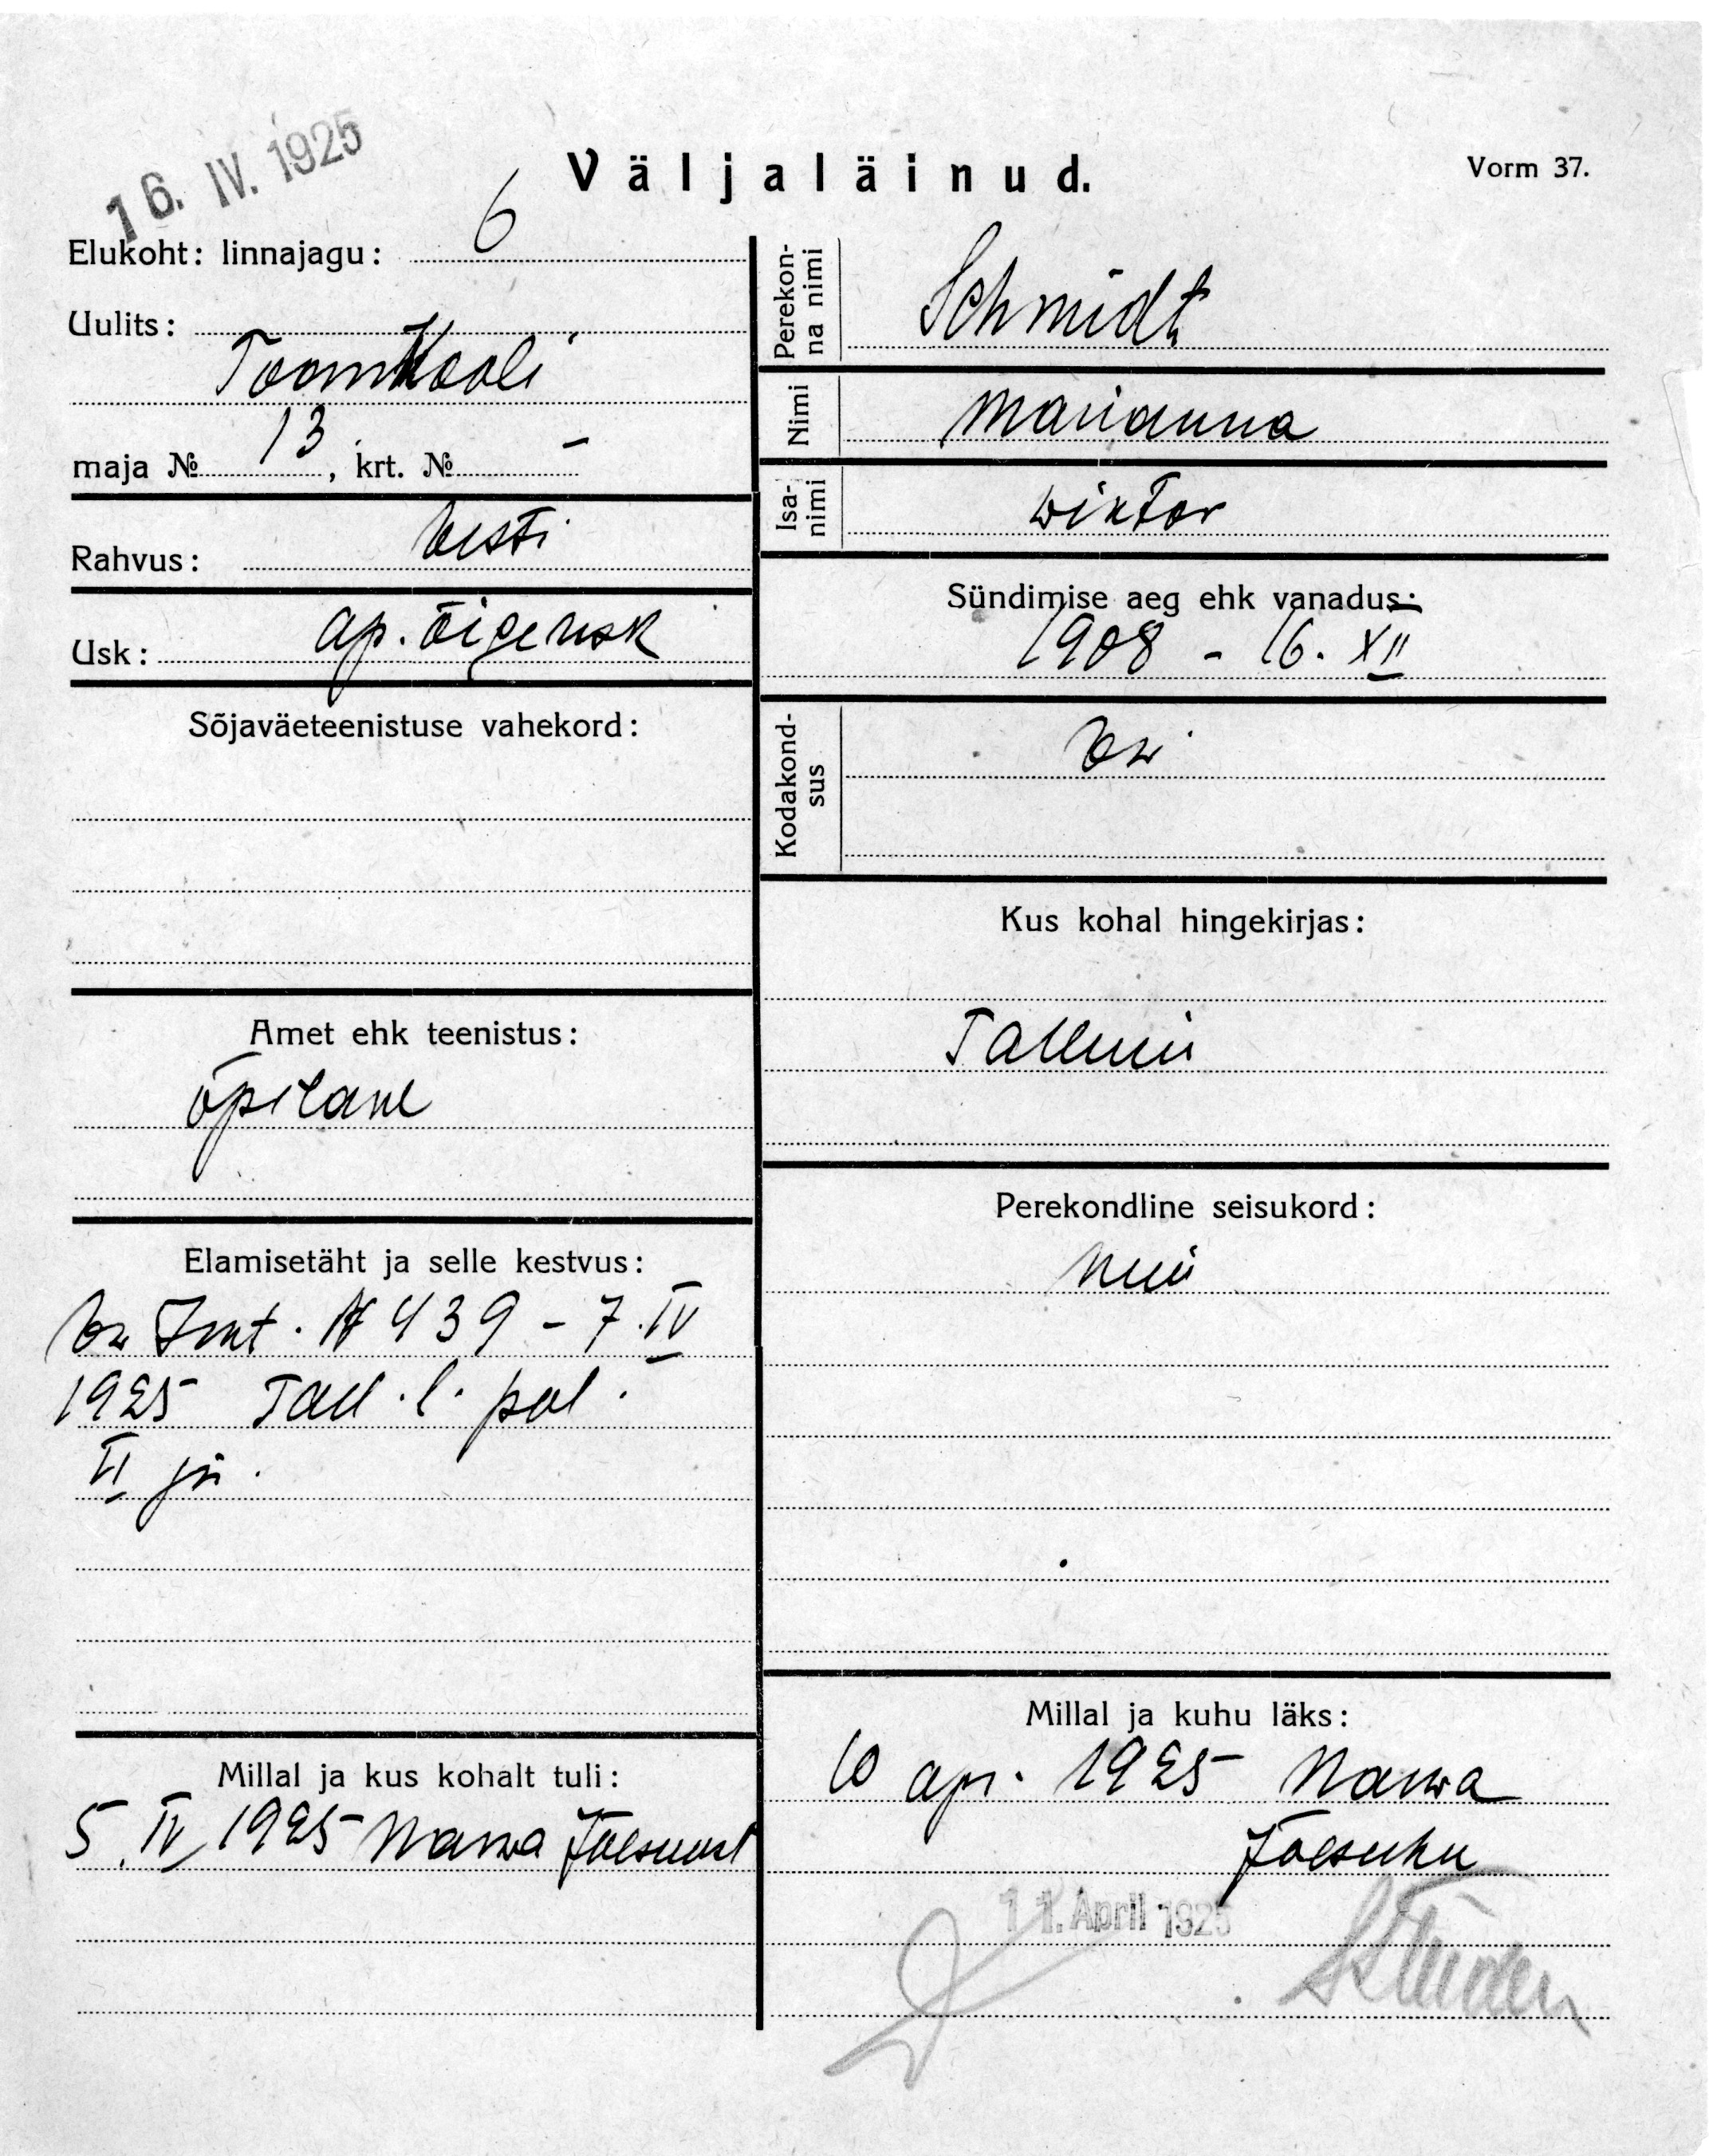 16. IV. 1925
Väljaläinud.
Vorm 37.
Elukoht: linnajagu: 6
Uulits:
Toomkooli
maja № 13, krt. № –
Rahvus: Eesti
Usk: ap. õigeusk
Sõjaväeteenistuse vahekord:
Amet ehk teenistus:
õpilane
Elamisetäht ja selle kestvus:
№ 439 – 7. IV
1925 Tall. l. pol.
VI js.
Millal ja kus kohalt tuli:
5. IV 1925 Narva Jõesuust
Perekon-
na nimi
Schmidt
Nimi
Marianna
Isa-
nimi
Wiktor
Sündimise aeg ehk vanadus:
1908 – 16. XII
Kodakond-
sus
Kus kohal hingekirjas:
Tallinn
Perekondline seisukord:
Millal ja kuhu läks:
10 apr. 1925 Narwa
Jõesuhu
11. April 1925